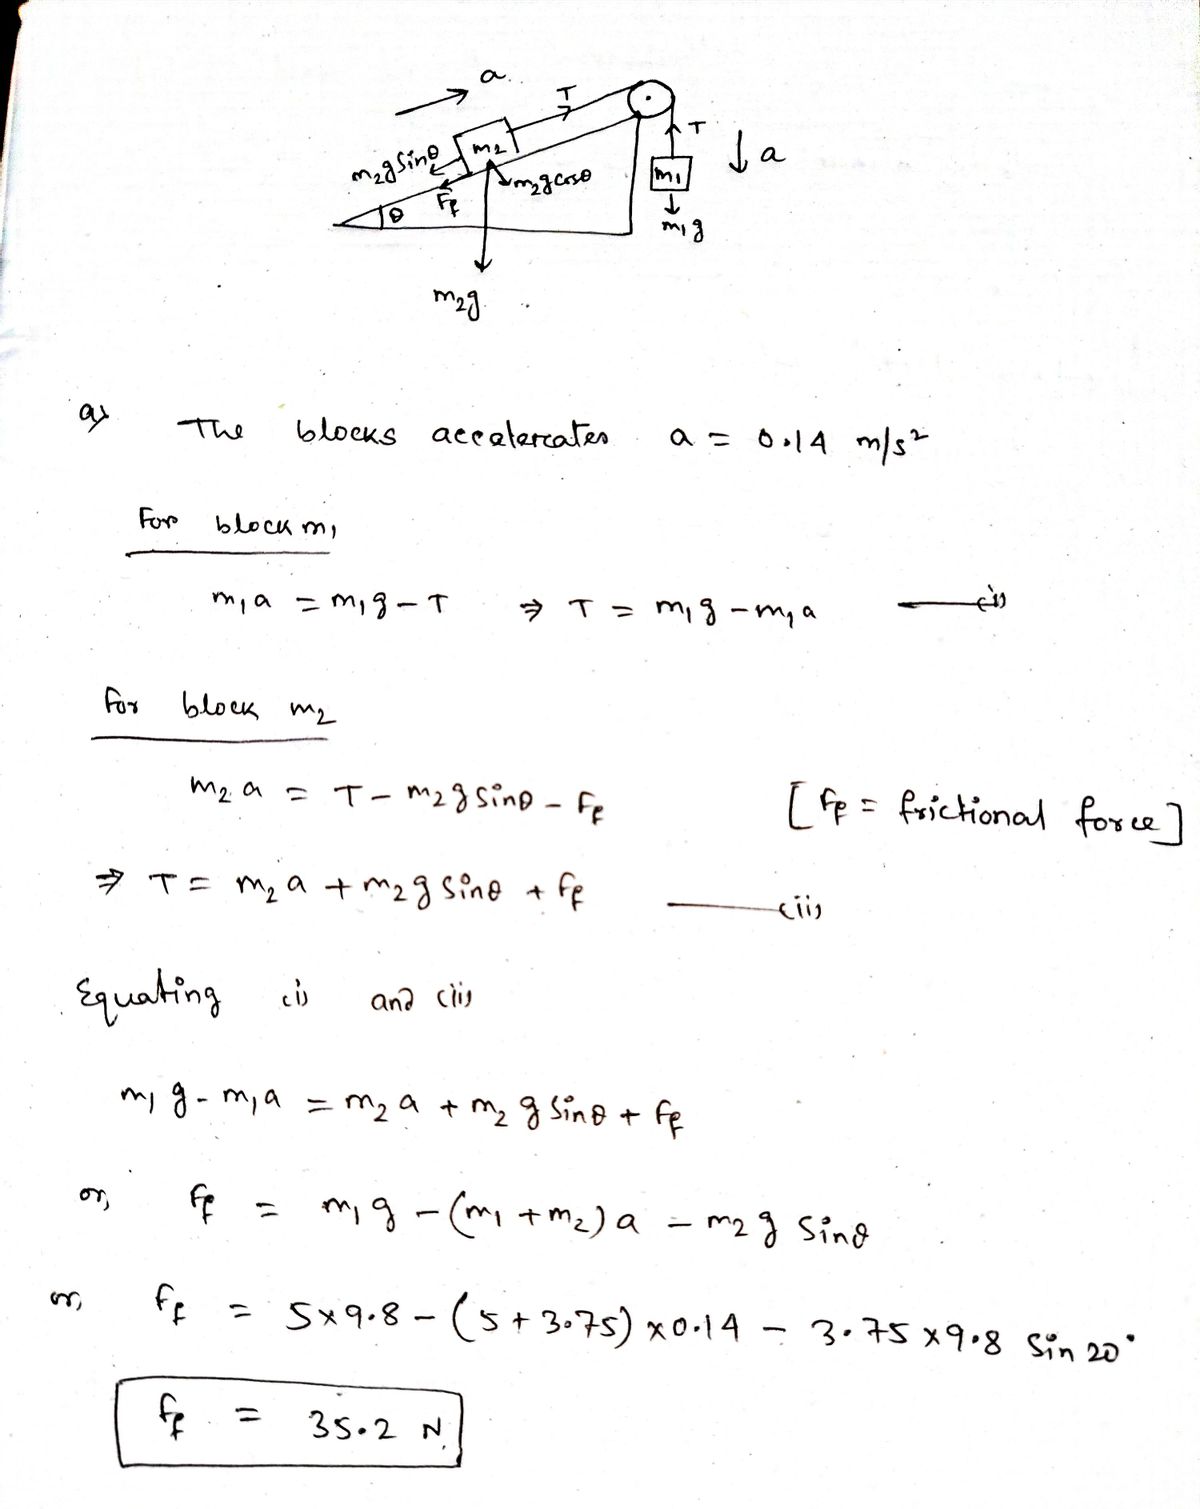 a
T
T
a
m₂g sinθ
m₂
m₂g cosθ
F_f
θ
m₁
m₁g
m₂g
a) The blocks accelercates a = 0.14 m/s²
For block m₁
m₁a = m₁g - T ⇒ T = m₁g - m₁a —(i)
For block m₂
m₂a = T - m₂g sinθ - F_f [F_f = frictional force]
⇒ T = m₂a + m₂g sinθ + F_f —(ii)
Equating (i) and (ii)
m₁g - m₁a = m₂a + m₂g sinθ + F_f
or, F_f = m₁g - (m₁ + m₂)a - m₂g sinθ
or, F_f = 5×9.8 - (5 + 3.75)×0.14 - 3.75×9.8 sin 20°
F_f = 35.2 N.